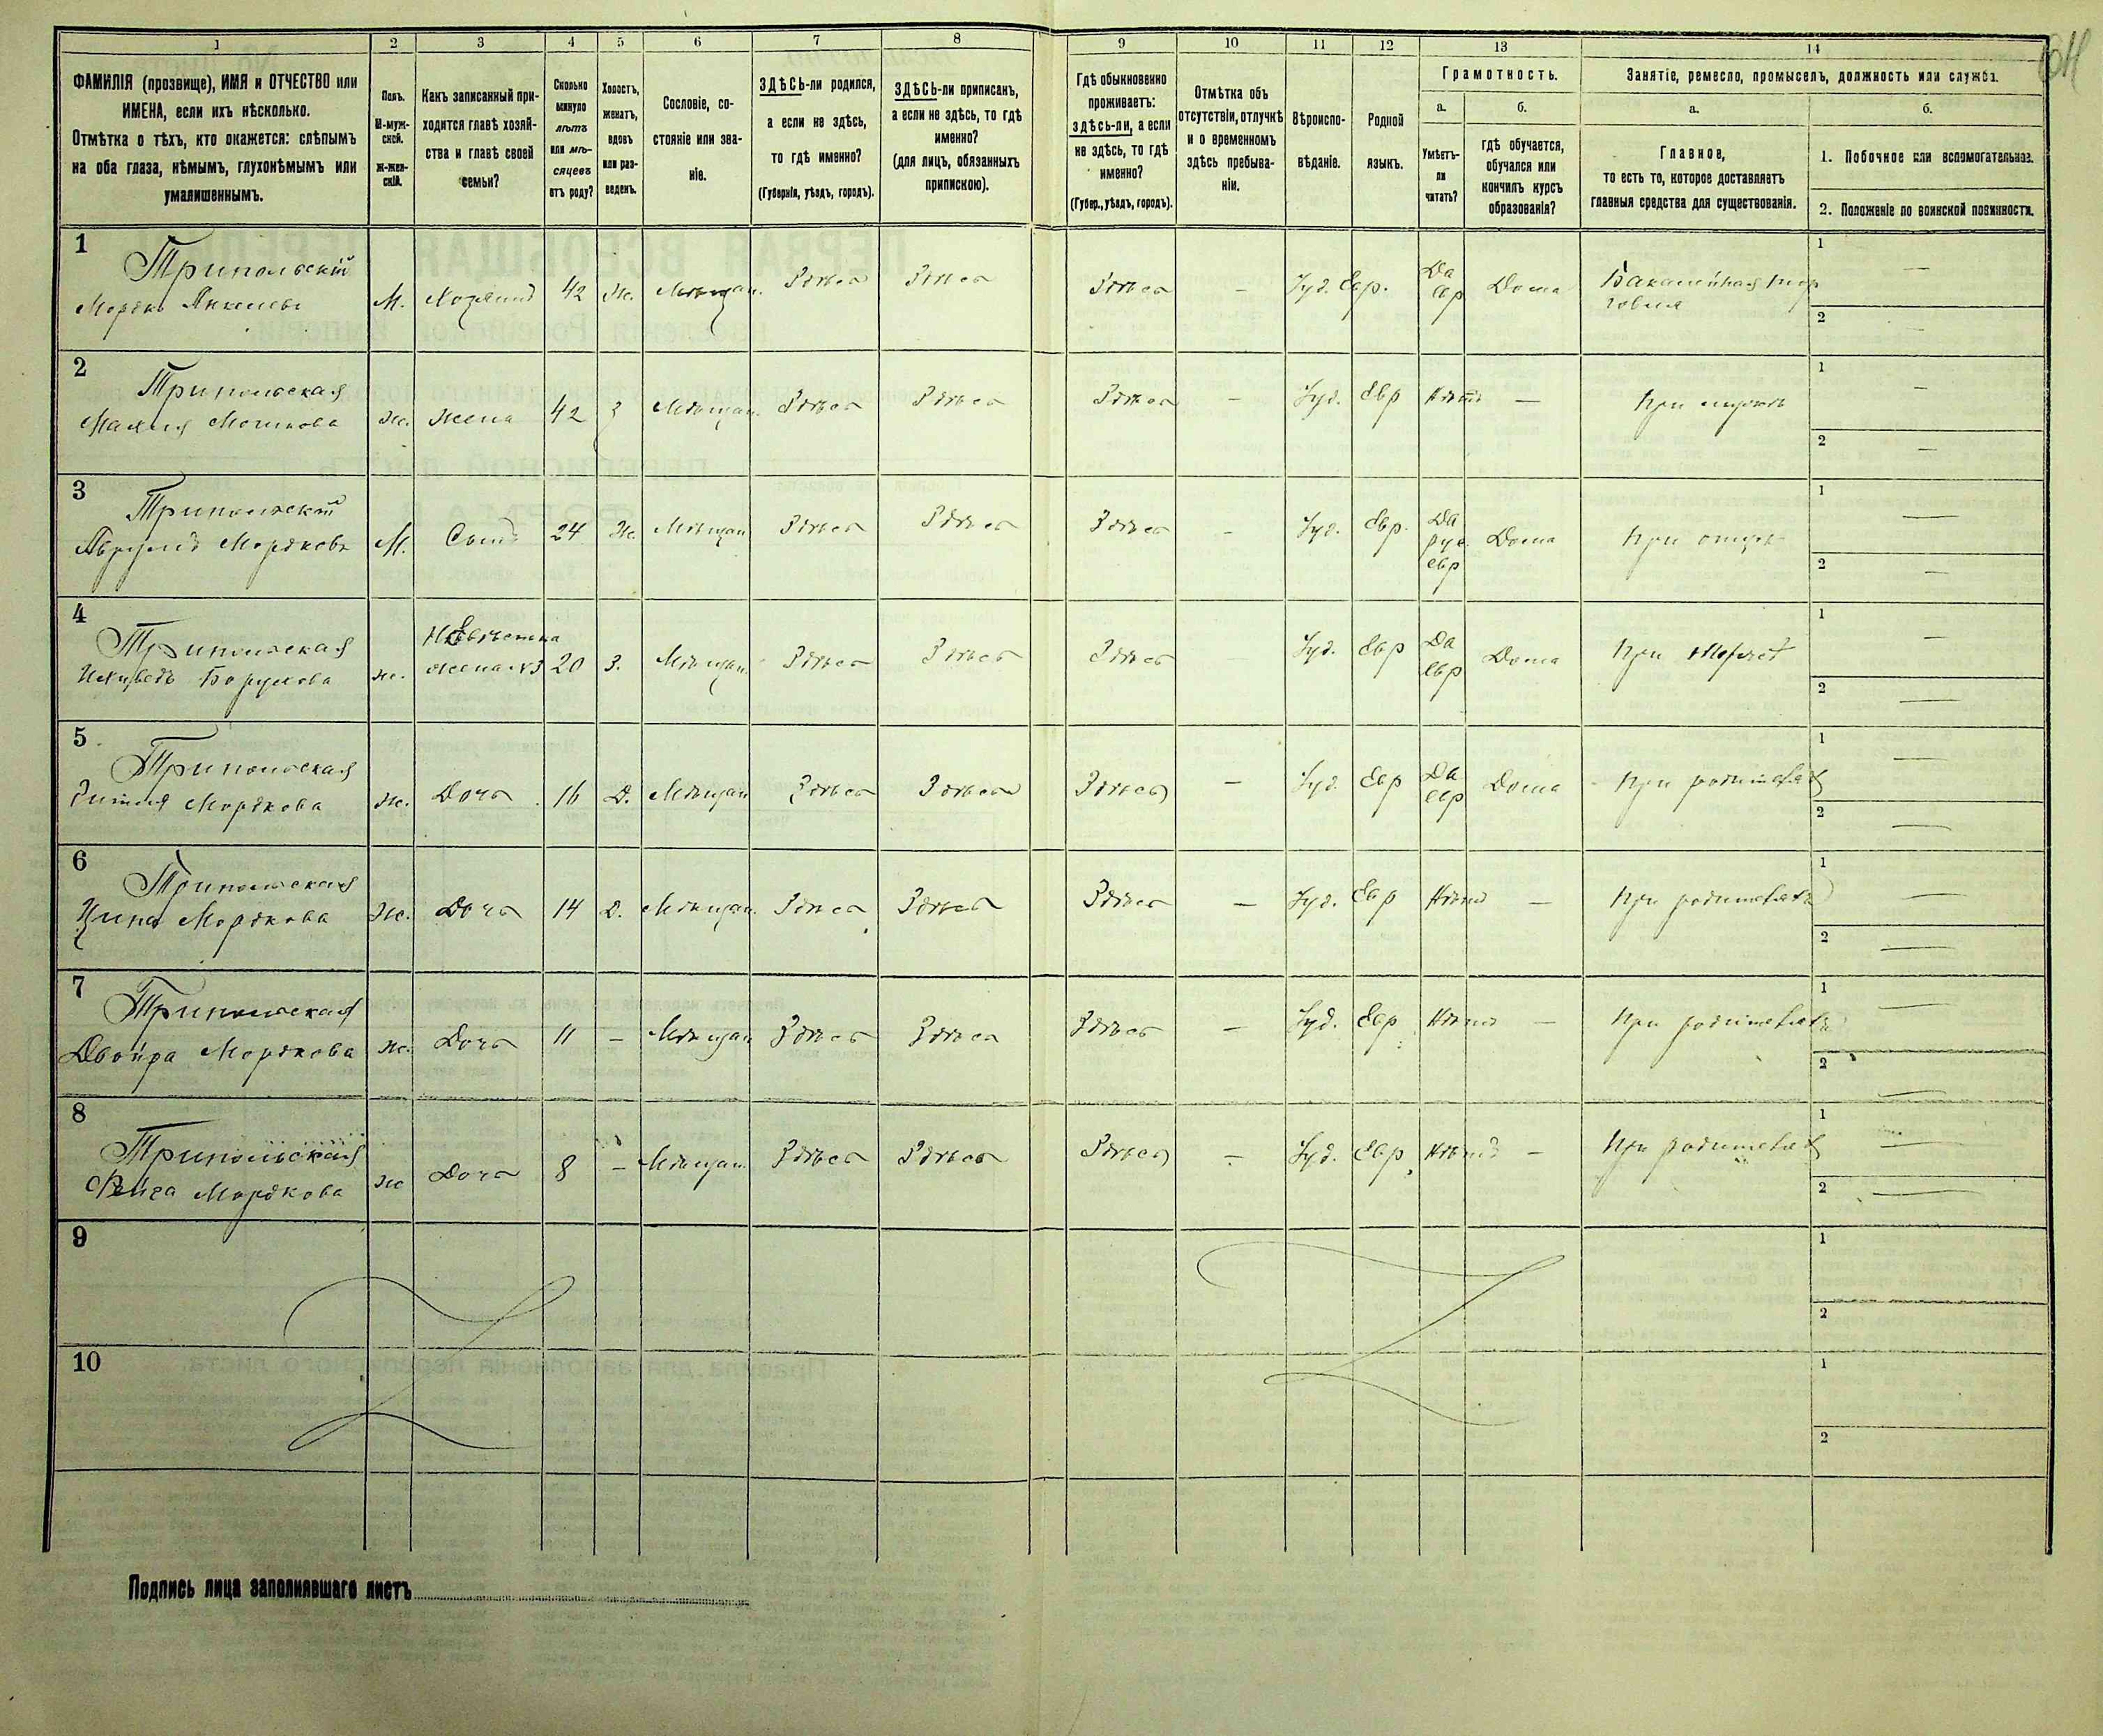 1 2 3 4 5 6 7 8 9 10 11 12 13 14
ФАМИЛІЯ (прозвище), ИМЯ и ОТЧЕСТВО или
ИМЕНА, если ихъ нѣсколько.
Отмѣтка о тѣхъ, кто окажется: слѣпымъ
на оба глаза, нѣмымъ, глухонѣмымъ или
умалишеннымъ.
Полъ.
М-муж-
ской.
Ж-жен-
скій.
Какъ записанный при-
ходится главѣ хозяй-
ства и главѣ своей
семьи?
Сколько
минуло
лѣтъ
или мѣ-
сяцевъ
отъ роду?
Холостъ,
женатъ,
вдовъ
или раз-
веденъ.
Сословіе, со-
стояніе или зва-
ніе.
ЗДѢСЬ-ли родился,
а если не здѣсь,
то гдѣ именно?
(Губернія, уѣздъ, городъ).
ЗДѢСЬ-ли приписанъ,
а если не здѣсь, то гдѣ
именно?
(для лицъ, обязанныхъ
припискою).
Гдѣ обыкновенно
проживаетъ:
здѣсь-ли, а если
не здѣсь, то гдѣ
именно?
(Губер., уѣздъ, городъ).
Отмѣтка объ
отсутствіи, отлучкѣ
и о временномъ
здѣсь пребыва-
ніи.
Вѣроиспо-
вѣданіе.
Родной
языкъ.
Грамотность.
а.
Умѣетъ-
ли
читать?
б.
гдѣ обучается,
обучался или
кончилъ курсъ
образованія?
Занятіе, ремесло, промыселъ, должность или служба.
а.
Главное,
то есть то, которое доставляетъ
главныя средства для существованія.
б.
1. Побочное или вспомогательное.
2. Положеніе по воинской повинности.
1
Трипольскій
Мордко Янкелевъ
М. Хозяинъ 42 Ж. Мѣщан. Здѣсь Здѣсь Здѣсь — Іуд. Евр. Да Евр Дома Бакалейная тор
говля
1 —
2 —
2
Трипольская
Мошкова
Ж. Жена 42 З Мѣщан. Здѣсь Здѣсь Здѣсь — Іуд. Евр Нѣтъ — При мужѣ
1 —
2 —
3
Трипольскій
Мордковъ
М. Сынъ 24 Ж. Мѣщан Здѣсь Здѣсь Здѣсь — Іуд. Евр. Да рус евр Дома При отцѣ
1 —
2 —
4
Трипольская
Борухова
ж. Невѣстка
жена №3 20 З. Мѣщан. Здѣсь Здѣсь Здѣсь Іуд. Евр Да Евр Дома При
1 —
2 —
5
Трипольская
Мордкова
Ж. Дочь 16 Д. Мѣщан Здѣсь Здѣсь Здѣсь — Іуд Евр Да евр Дома При родителях
1 —
2 —
6
Трипольская
Мордкова
Ж. Дочь 14 Д. Мѣщан. Здѣсь Здѣсь Здѣсь — Іуд. Евр Нѣтъ — При родителях
1 —
2 —
7
Трипольская
Двойра Мордкова
Ж. Дочь 11 — Мѣщан Здѣсь Здѣсь Здѣсь — Іуд. Евр Нѣтъ — При родителях
1 —
2 —
8
Трипольская
Фейга Мордкова
Ж Дочь 8 — Мѣщан Здѣсь Здѣсь Здѣсь — Іуд. Евр Нѣтъ — При родителях
1 —
2 —
9
1
2
10
1
2
Подпись лица заполнявшаго листъ